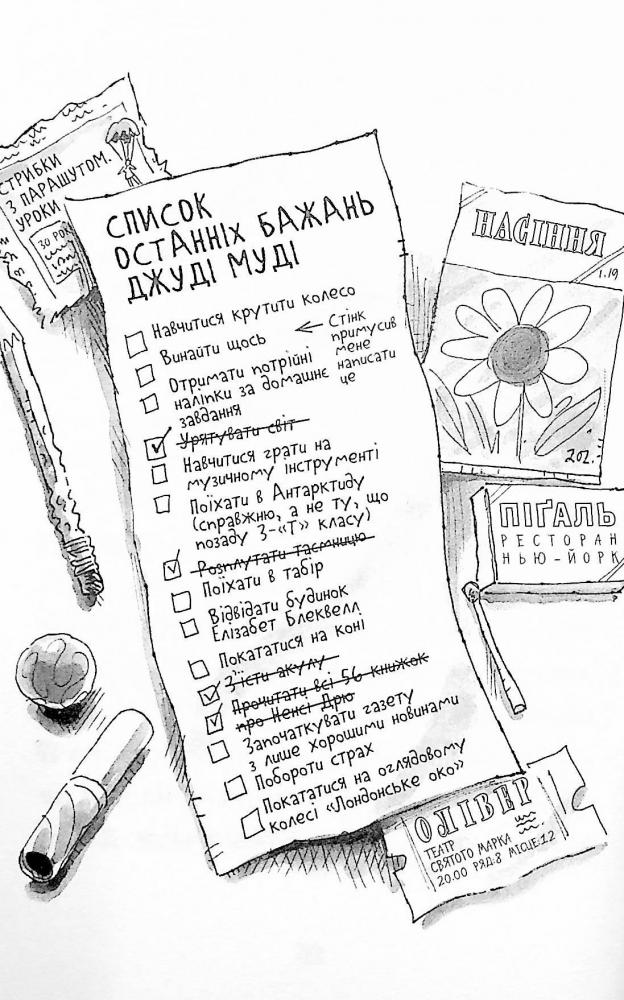 СТРИБКИ
З ПАРАШУТОМ.
УРОКИ
СПИСОК
ОСТАННІХ БАЖАНЬ
ДЖУДІ МУДІ
Навчитися крутити колесо
Винайти щось
Стінк
примусив
мене
написати
це
Отримати потрійні
наліпки за домашнє
завдання
Урятувати світ
Навчитися грати на
музичному інструменті
Поїхати в Антарктиду
(справжню, а не ту, що
позаду 3-«Т» класу)
Розплутати таємницю
Поїхати в табір
Відвідати будинок
Елізабет Блеквелл
Покататися на коні
З'їсти акулу
Прочитати всі 56 книжок
про Ненсі Дрю
Започаткувати газету
з лише хорошими новинами
Побороти страх
Покататися на оглядовому
колесі «Лондонське око»
НАСІННЯ
1.19
ПІҐАЛЬ
РЕСТОРАН
НЬЮ-ЙОРК
ОЛІВЕР
ТЕАТР
СВЯТОГО МАРКА
20.00 РЯД:8 МІСЦЕ:12